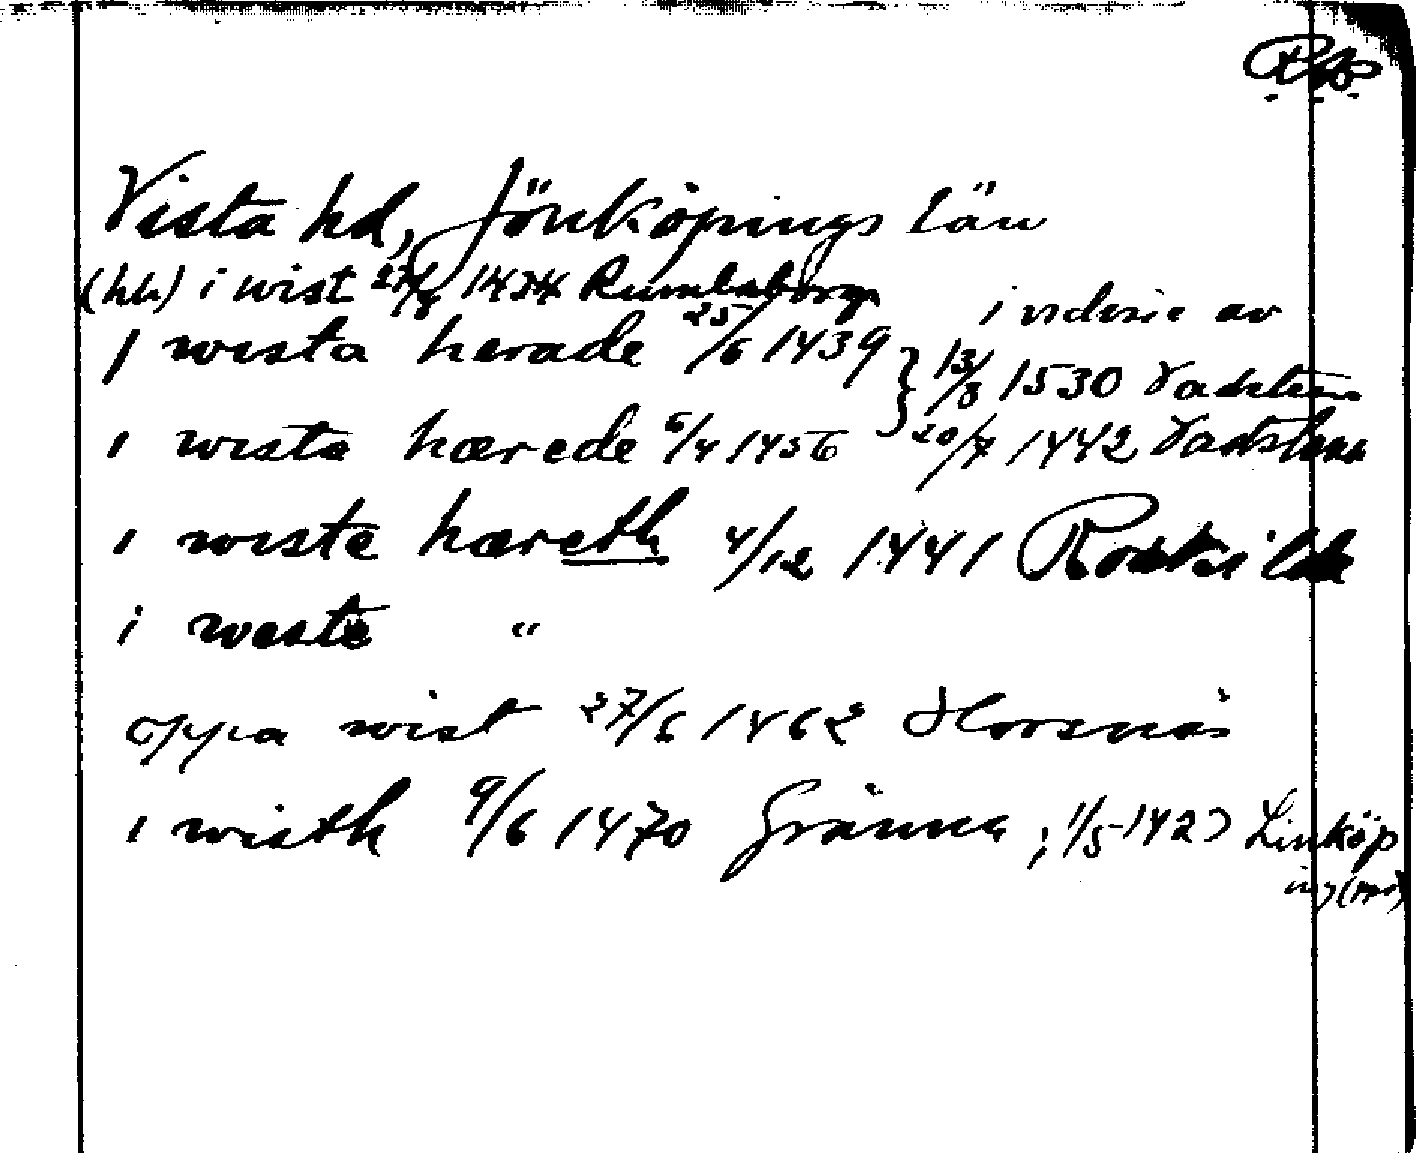 Vista hd, Jönköpings län
(hh) i wist 27/8 1434 Rumlaborg
i vidisse av
J wista herade 25/6 1439
13/8 1530 Vadstena
i wista hærede 5/4 1456 20/7 1442 Vadstena
i wiste hæreth 4/12 1441 Roskilde
i weste "
oppa wist 27/6 1462 Horsnäs
i wisth 9/6 1470 Gränna ; 1/5 1427 Linköp
ing